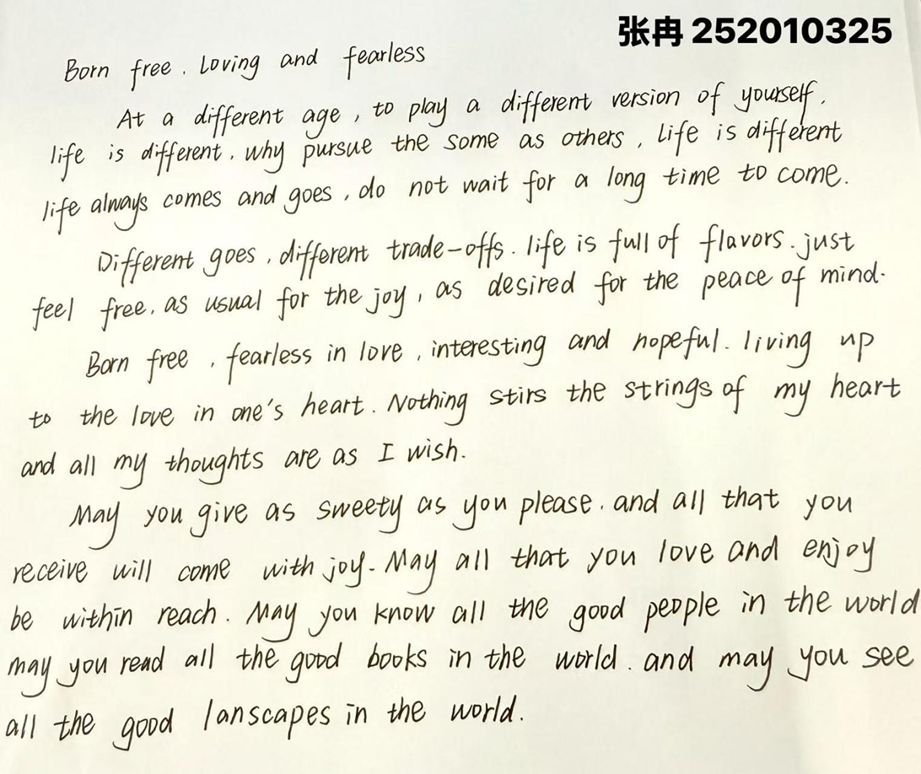 张冉 252010325
Born free. Loving and fearless
At a different age, to play a different version of yourself.
life is different. why pursue the some as others, life is different
life always comes and goes, do not wait for a long time to come.
Different goes, different trade-offs. life is full of flavors. just
feel free. as usual for the joy, as desired for the peace of mind.
Born free, fearless in love, interesting and hopeful. living up
to the love in one's heart. Nothing stirs the strings of my heart
and all my thoughts are as I wish.
May you give as sweety as you please. and all that you
receive will come with joy. May all that you love and enjoy
be within reach. May you know all the good people in the world
may you read all the good books in the world. and may you see
all the good lanscapes in the world.